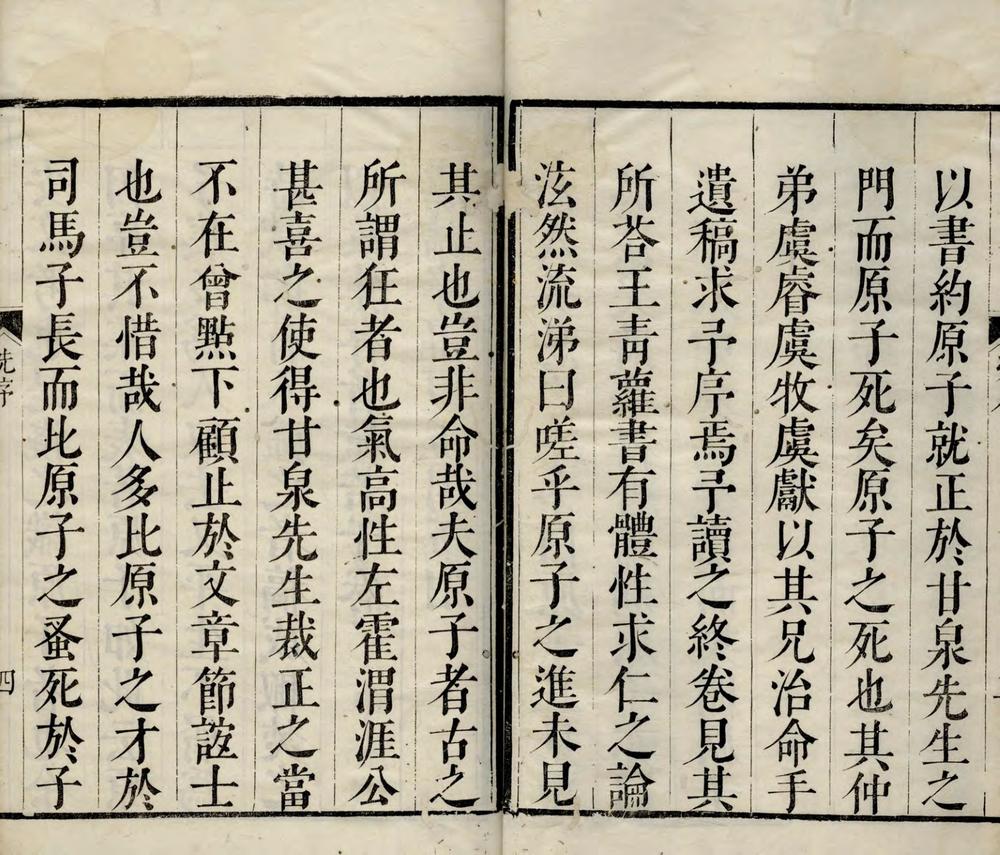 以書約原子就正於甘泉先生之
門而原子死矣原子之死也其仲
弟虞睿虞牧虞獻以其兄治命手
遺稿求予序焉予讀之終卷見其
所荅王靑蘿書有體性求仁之論
泫然流涕曰嗟乎原子之進未見
其止也豈非命哉夫原子者古之
所謂狂者也氣高性左霍渭涯公
甚喜之使得甘泉先生裁正之當
不在曾點下顧止於文章節誼士
也豈不惜哉人多比原子之才於
司馬子長而比原子之蚤死於子
先序
四